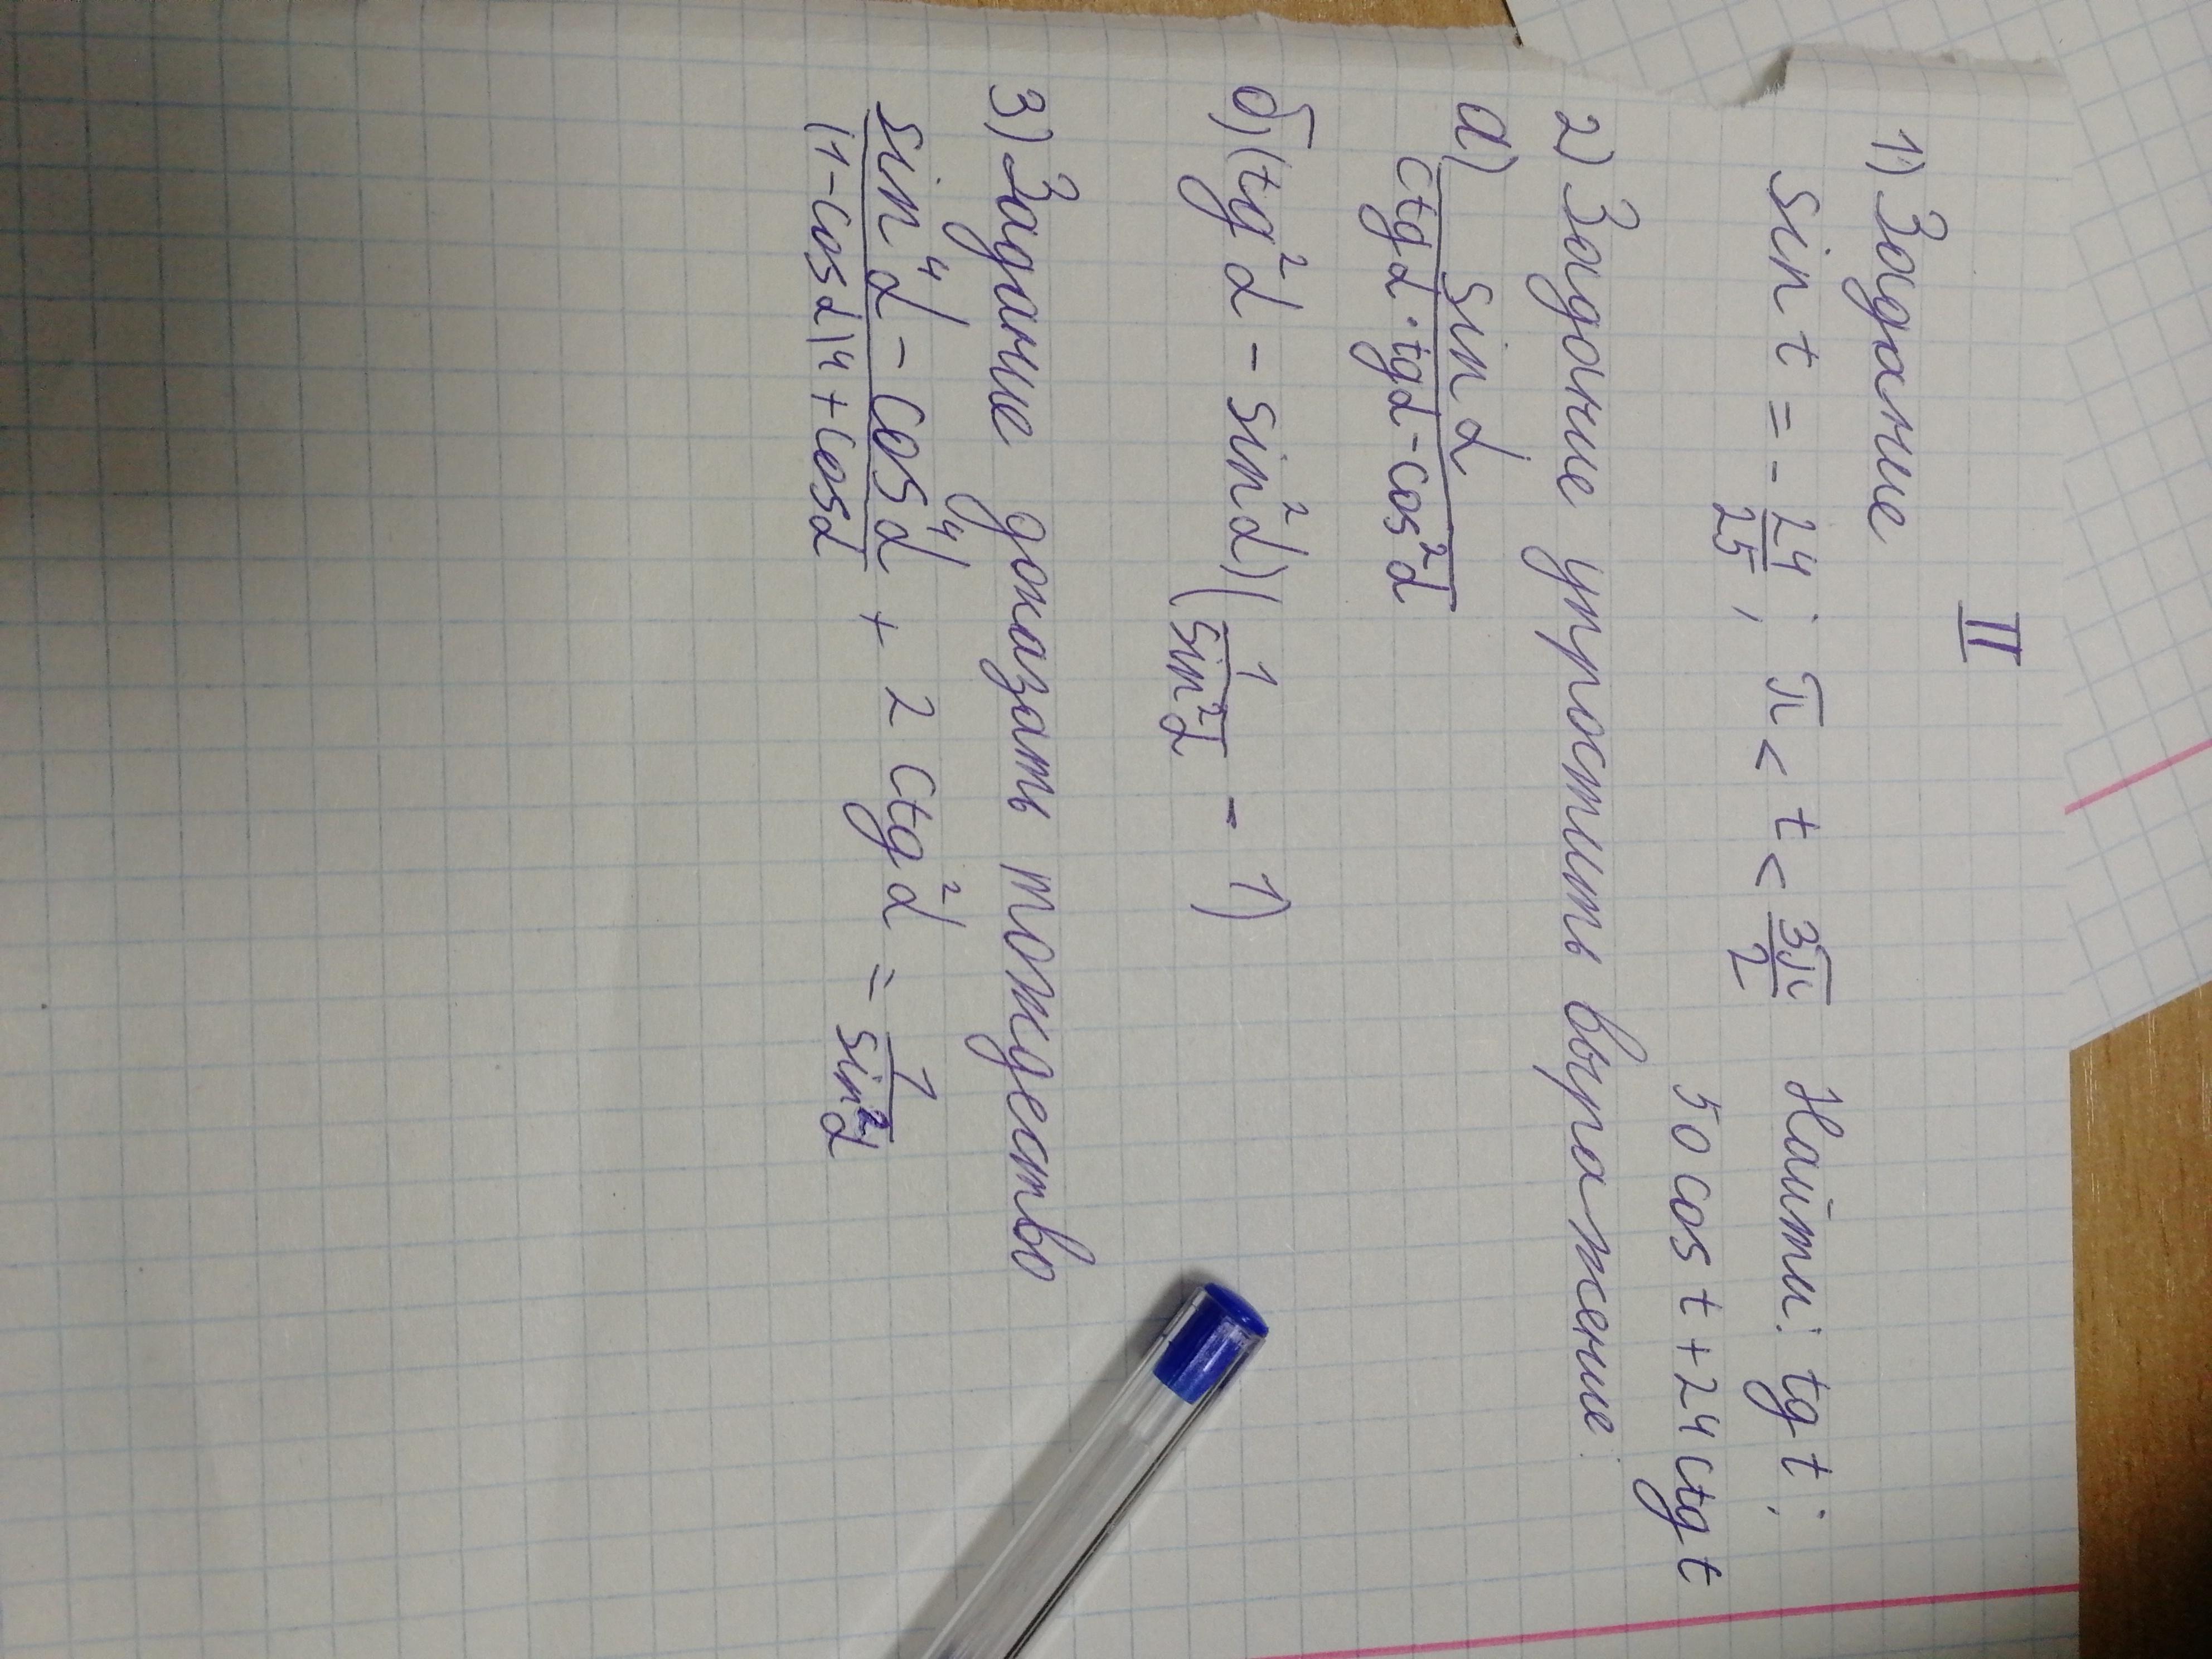 II
1) Задание
sin t = - 24/25; π < t < 3π/2 Найти: tg t;
50 cos t + 24 ctg t
2) Задание упростить выражение:
а) sin α / ctg α · tg α - cos² α
б) (tg² α - sin² α)(1/sin² α - 1)
3) Задание доказать тождество
sin⁴ α - cos⁴ α / (1 - cos α)(1 + cos α + 2 ctg² α = 1/sin² α